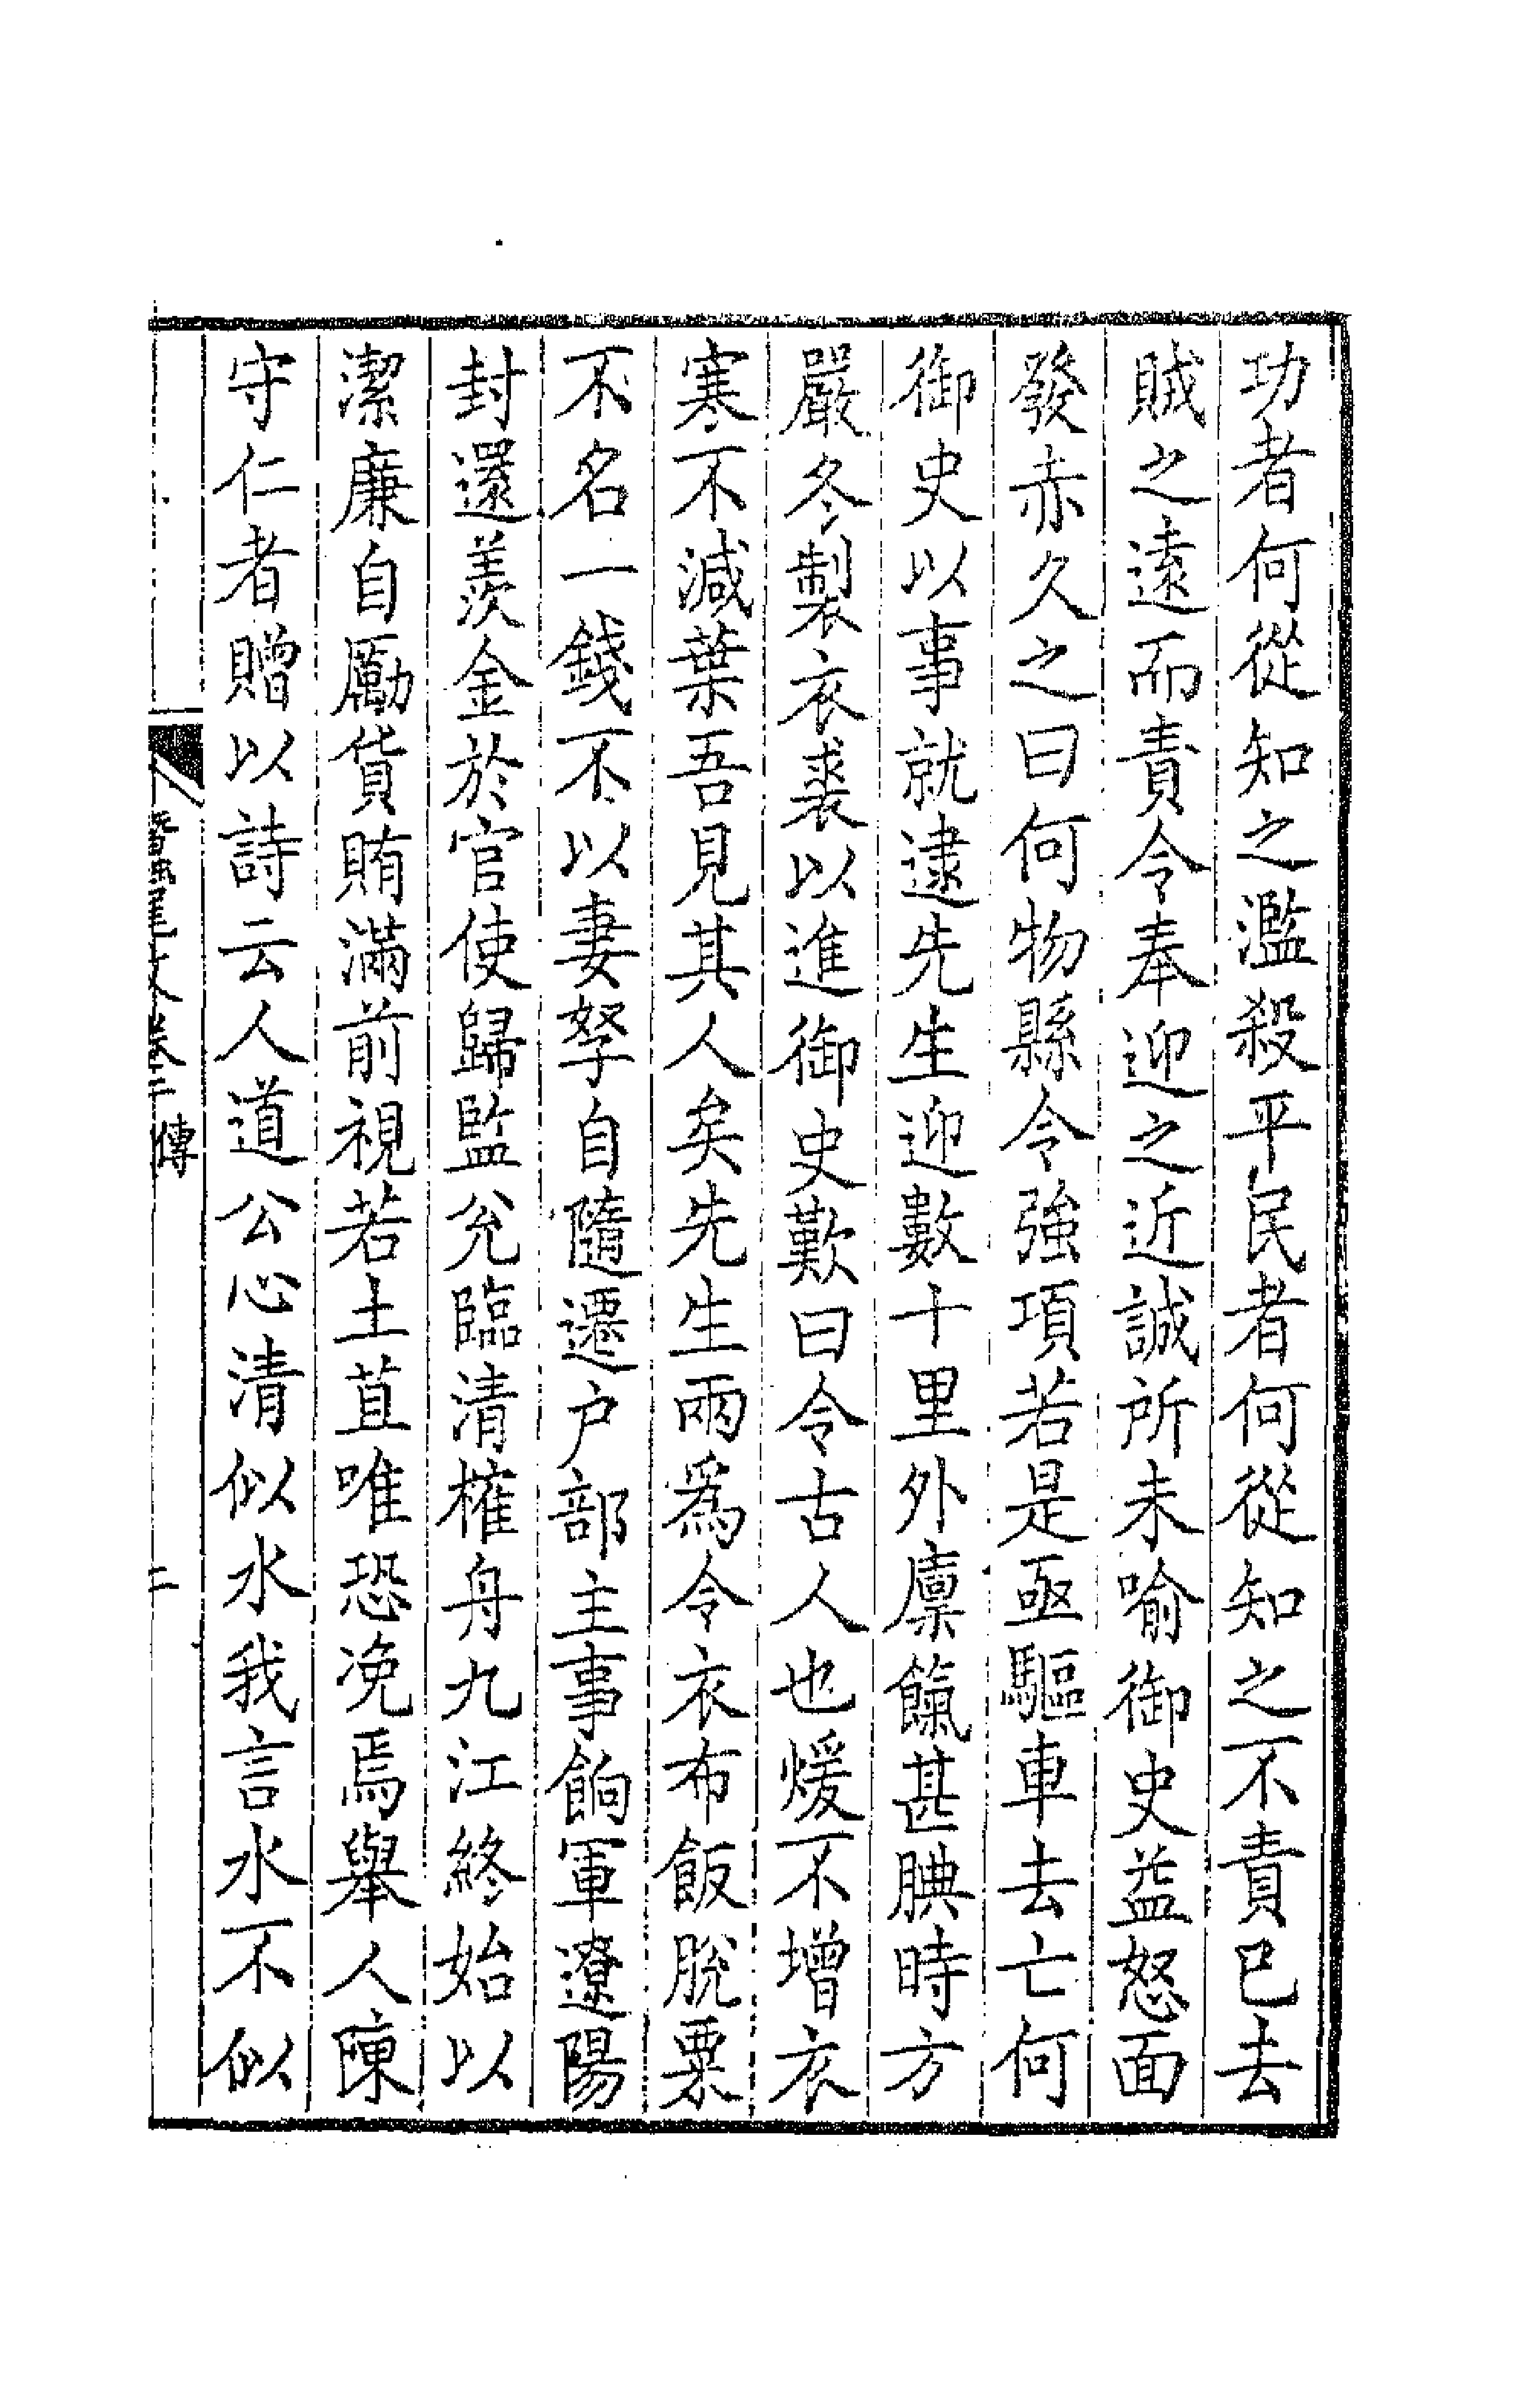 功者何從知之濫殺平民者何從知之不責已去
賊之遠而責令奉迎之近誠所未喻御史益怒面
發赤久之曰何物縣令強項若是亟驅車去亡何
御史以事就逮先生迎數十里外廩餼甚腆時方
嚴冬製衣裘以進御史歎曰令古人也煖不增衣
寒不減葉吾見其人矣先生兩爲令衣布飯脫粟
不名一錢不以妻孥自隨遷户部主事餉軍遼陽
封還羨金於官使歸監兊臨清榷舟九江終始以
潔廉自勵貨賄滿前視若土苴唯恐浼焉舉人陳
守仁者贈以詩云人道公心清似水我言水不似
文卷三 傳
二